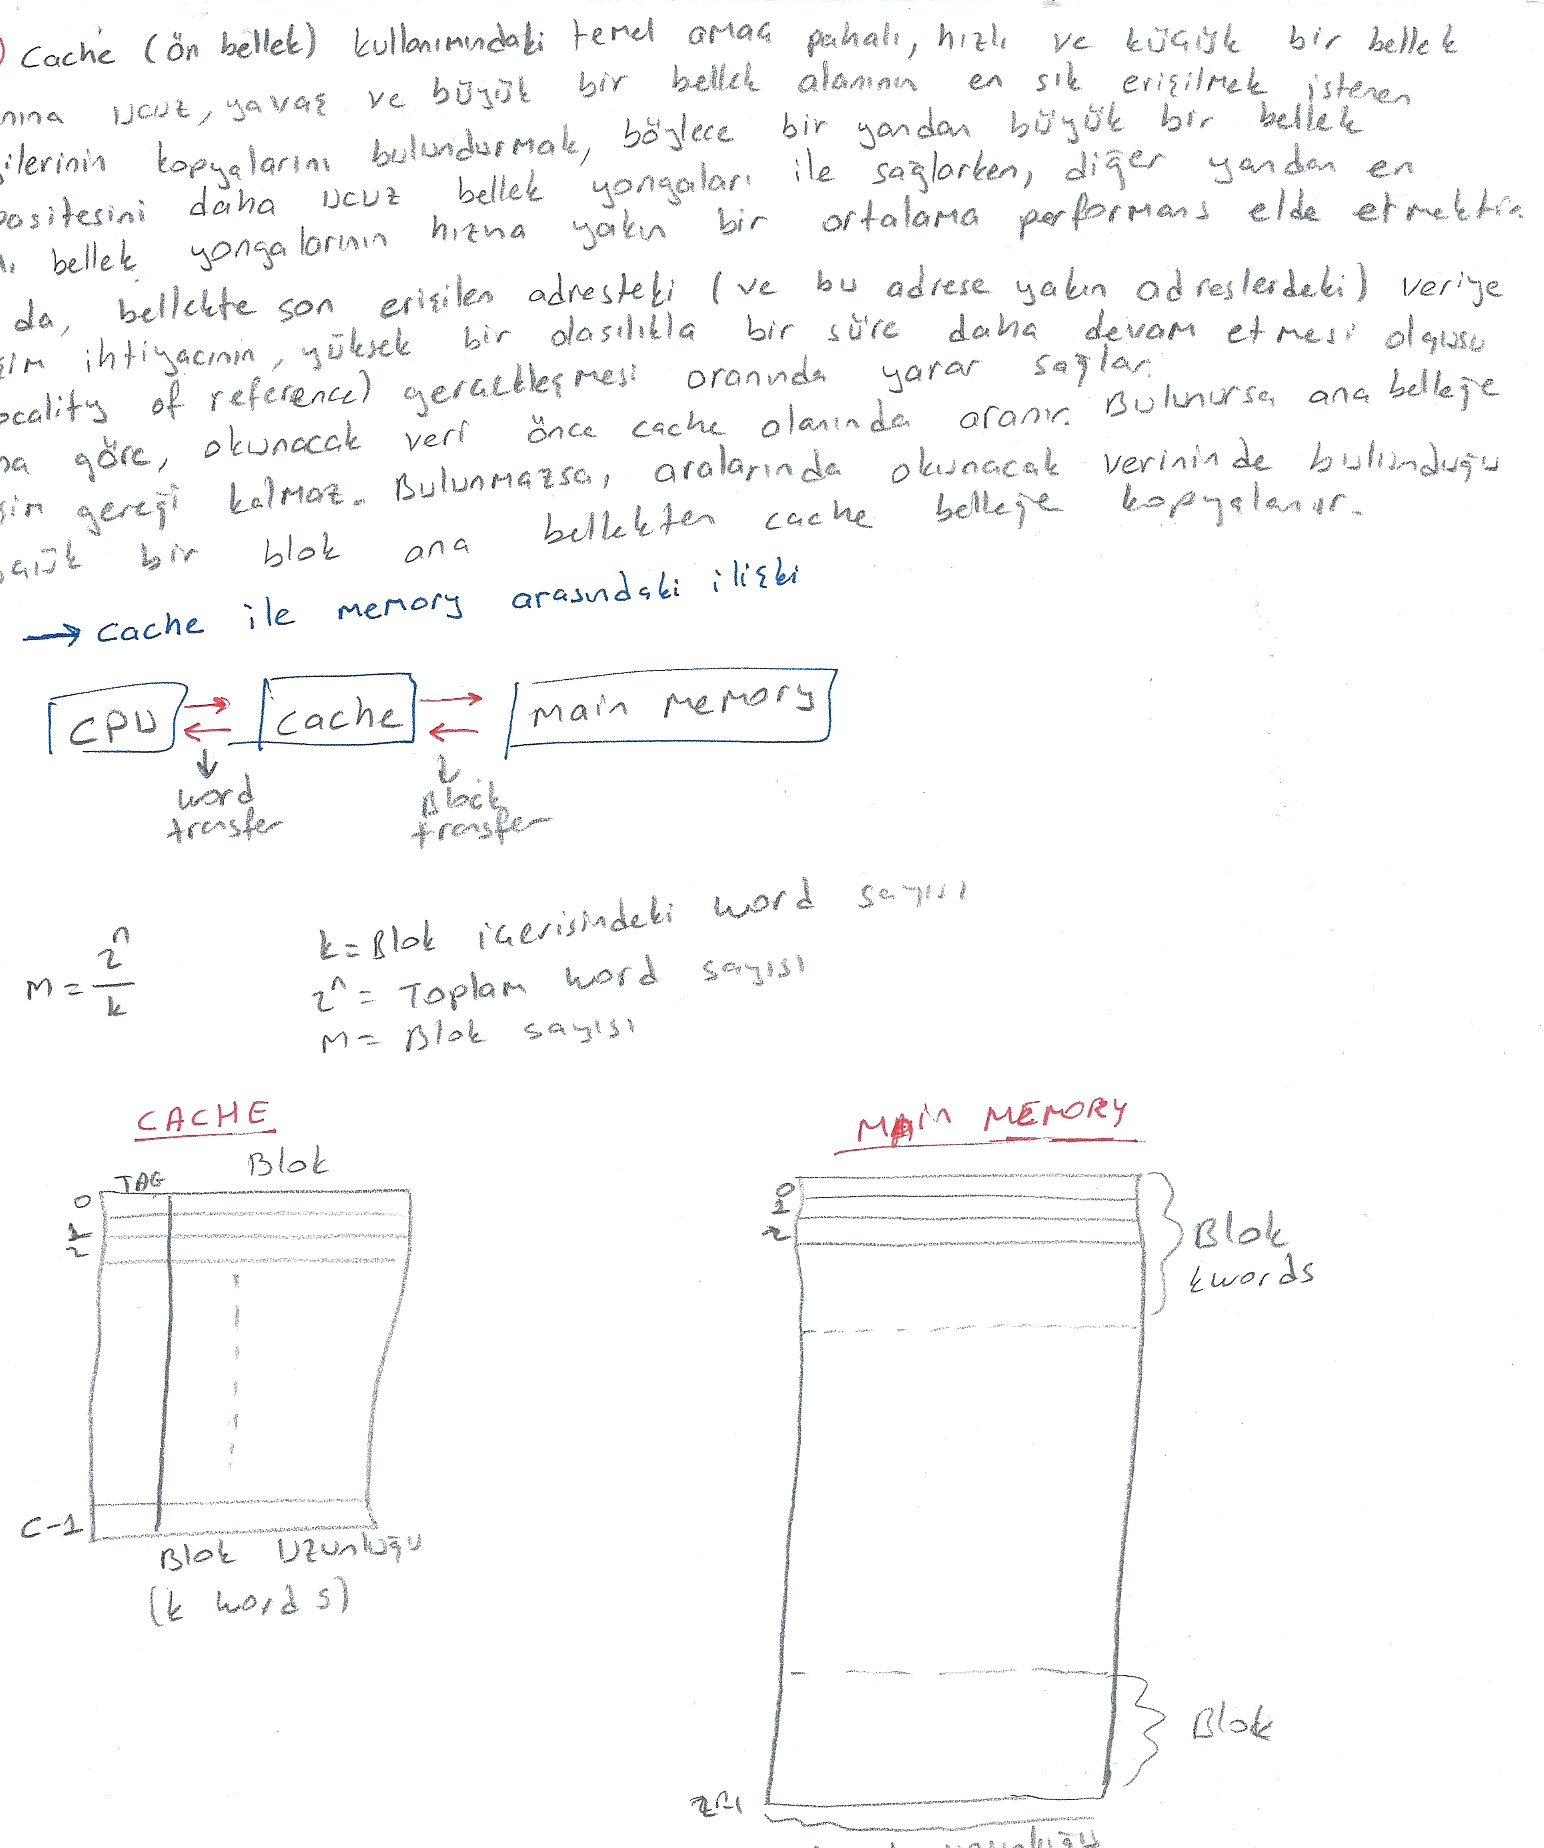 ) Cache (ön bellek) kullanımındaki temel amaç pahalı, hızlı ve küçük bir bellek
nına ucuz, yavaş ve büyük bir bellek alanının en sık erişilmek istenen
gilerinin kopyalarını bulundurmak, böylece bir yandan büyük bir bellek
pasitesini daha ucuz bellek yongaları ile sağlarken, diğer yandan en
lı bellek yongalarının hızına yakın bir ortalama performans elde etmektir.
da, bellekte son erişilen adresteki (ve bu adrese yakın adreslerdeki) veriye
şim ihtiyacının, yüksek bir olasılıkla bir süre daha devam etmesi olgusu
ocality of reference) gerçekleşmesi oranında yarar sağlar.
na göre, okunacak veri önce cache alanında aranır. Bulunursa ana belleğe
şim gereği kalmaz. Bulunmazsa, aralarında okunacak verinin de bulunduğu
çük bir blok ana bellekten cache belleğe kopyalanır.
→ Cache ile memory arasındaki ilişki
CPU Cache Main Memory
word transfer
Block transfer
M = 2^n / k
k = Blok içerisindeki word sayısı
2^n = Toplam word sayısı
M = Blok sayısı
CACHE
MAiN MEMORY
TAG Blok
0
1
2
C-1
Blok Uzunluğu
(k words)
0
1
2
Blok
k words
Blok
2^n-1
uzunluğu